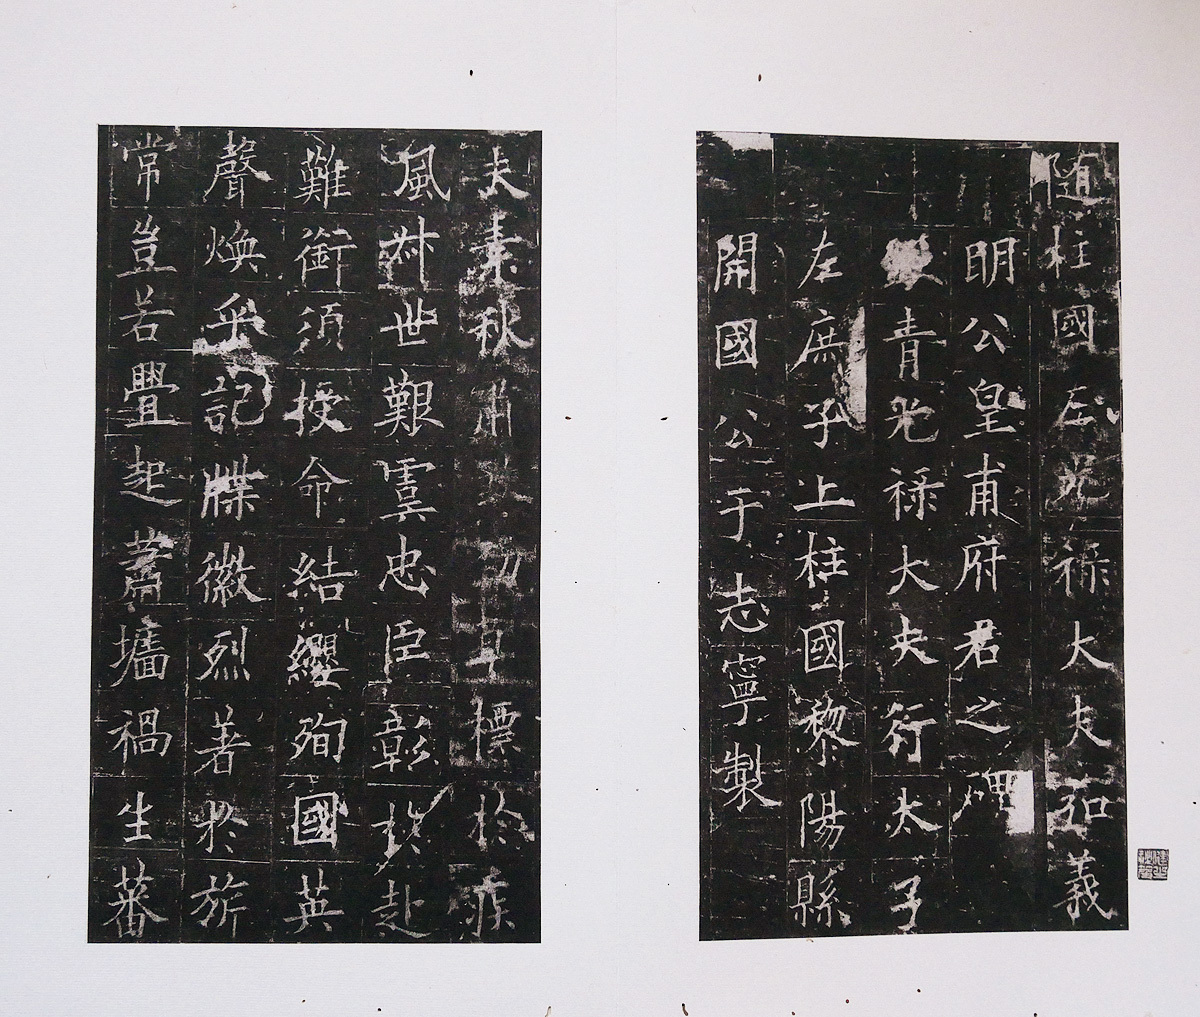 随柱國左光祿大夫弘義
明公皇甫府君之碑
銀青光祿大夫行太子
左庶子上柱國黎陽縣
開國公于志寧製
夫素秋肅煞勁草標於疾
風叶世艱虞忠臣彰於赴
難銜須授命結纓殉國英
聲煥乎記牒徽烈著於旂
常豈若疊起蕭墻禍生蕃